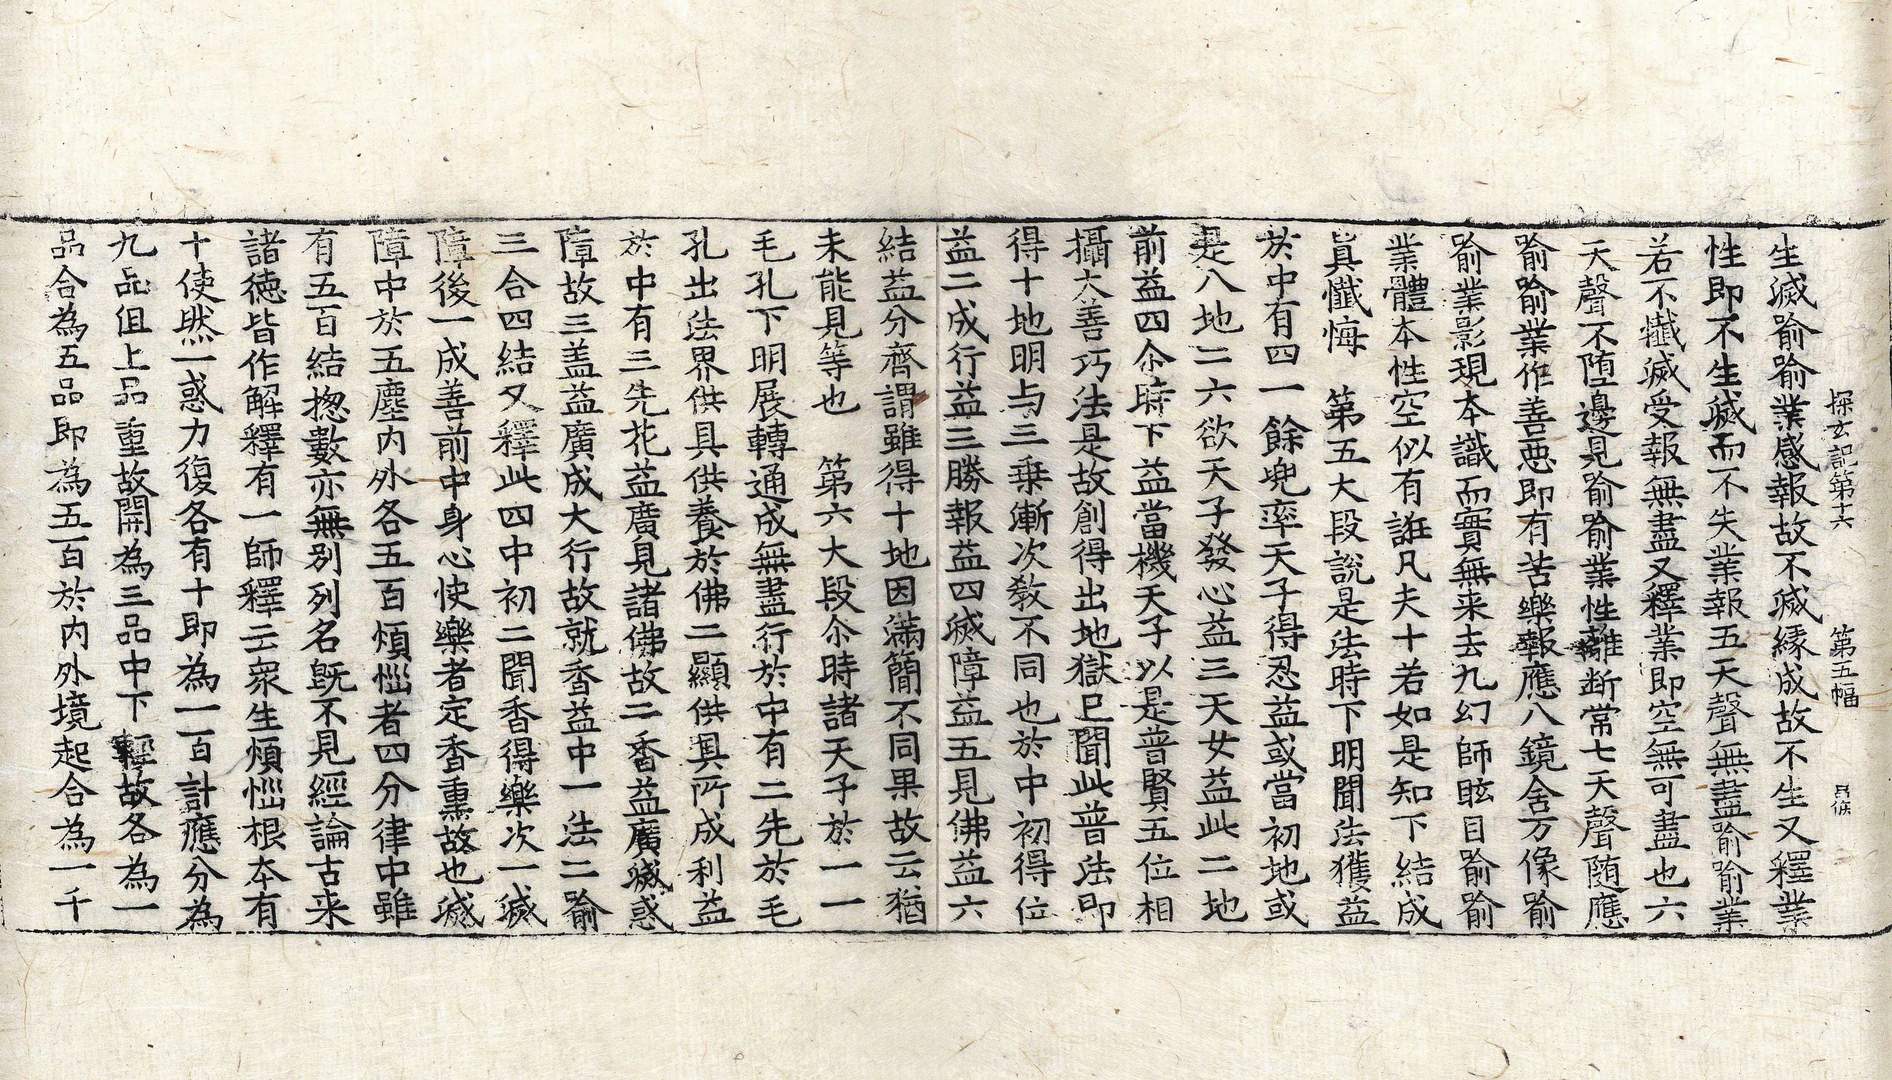 探玄記第十六　第五幅　呂俟
生滅喻喻業感報故不滅緣成故不生又釋業
性即不生滅而不失業報五天聲無盡喻喻業
若不懺滅受報無盡又釋業即空無可盡也六
天聲不墮邊見喻喻業性離断常七天聲随應
喻喻業作善惡即有苦樂報應八鏡含万像喻
喻業影現本識而實無来去九幻師眩目喻喻
業體本性空似有誑凡夫十若如是知下結成
眞懺悔　第五大段說是法時下明聞法獲益
於中有四一餘兜率天子得忍益或當初地或
是八地二六欲天子發心益三天女益此二地
前益四尒時下益當機天子以是普賢五位相
攝大善巧法是故創得出地獄已聞此普法即
得十地明与三乗漸次教不同也於中初得位
益二成行益三勝報益四滅障益五見佛益六
結益分齊謂雖得十地因滿簡不同果故云猶
未能見等也　第六大段尒時諸天子於一一
毛孔下明展轉通成無盡行於中有二先於毛
孔出法界供具供養於佛二顯供具所成利益
於中有三先花益廣見諸佛故二香益廣滅惑
障故三盖益廣成大行故就香益中一法二喻
三合四結又釋此四中初二聞香得樂次一滅
障後一成善前中身心快樂者定香熏故也滅
障中於五塵內外各五百煩惱者四分律中雖
有五百結揔數亦無別列名旣不見經論古来
諸徳皆作解釋有一師釋云衆生煩惱根本有
十使然一惑力復各有十即為一百計應分為
九品伹上品重故開為三品中下輕故各為一
品合為五品即為五百於內外境起合為一千